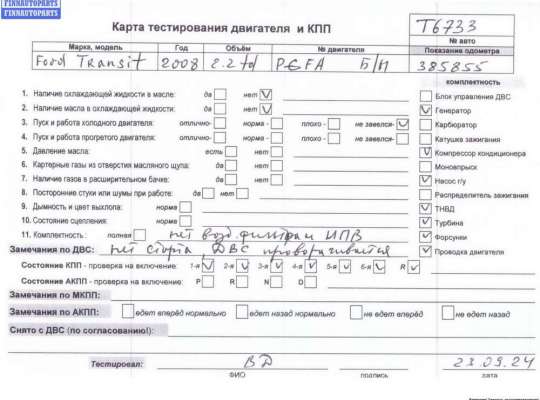 FINNAUTOPARTS
FINNAUTOPARTS
Карта тестирования двигателя и КПП
T6733
№ авто
Марка, модель Год Объём № двигателя Показание одометра
Ford Transit 2008 2.2 td PGFA Б/Н 385855
комплектность
1. Наличие охлаждающей жидкости в масле: да нет V
Блок управления ДВС
2. Наличие масла в охлаждающей жидкости: да нет V
V Генератор
3. Пуск и работа холодного двигателя: отлично- норма - плохо - не завелся- V
Карбюратор
4. Пуск и работа прогретого двигателя: отлично- норма - плохо -
Катушке зажигания
5. Давление масла: есть нет
V Компрессор кондиционера
6. Картерные газы из отверстия масляного щупа: да нет
Моновпрыск
7. Наличие газов в расширительном бачке: да нет
V Насос г/у
8. Посторонние стуки или шумы при работе: да нет
Распределитель зажигания
9. Дымность и цвет выхлопа: норма
V ТНВД
10. Состояние сцепления: норма
V Турбина
11. Комплектность: полная нет возд. фильтра ИПВ
V Форсунки
Замечания по ДВС: нет старта, ДВС проворачивается
V Проводка двигателя
Состояние КПП - проверка на включение: 1-я V 2-я V 3-я V 4-я V 5-я V 6-я V R V
Состояние АКПП - проверка на включение: P R N D
Замечания по МКПП:
Замечания по АКПП: едет вперёд нормально едет назад нормально не едет вперёд не едет назад
Снято с ДВС (по согласованию!):
Тестировал: ВД 23.09.24
ФИО подпись дата